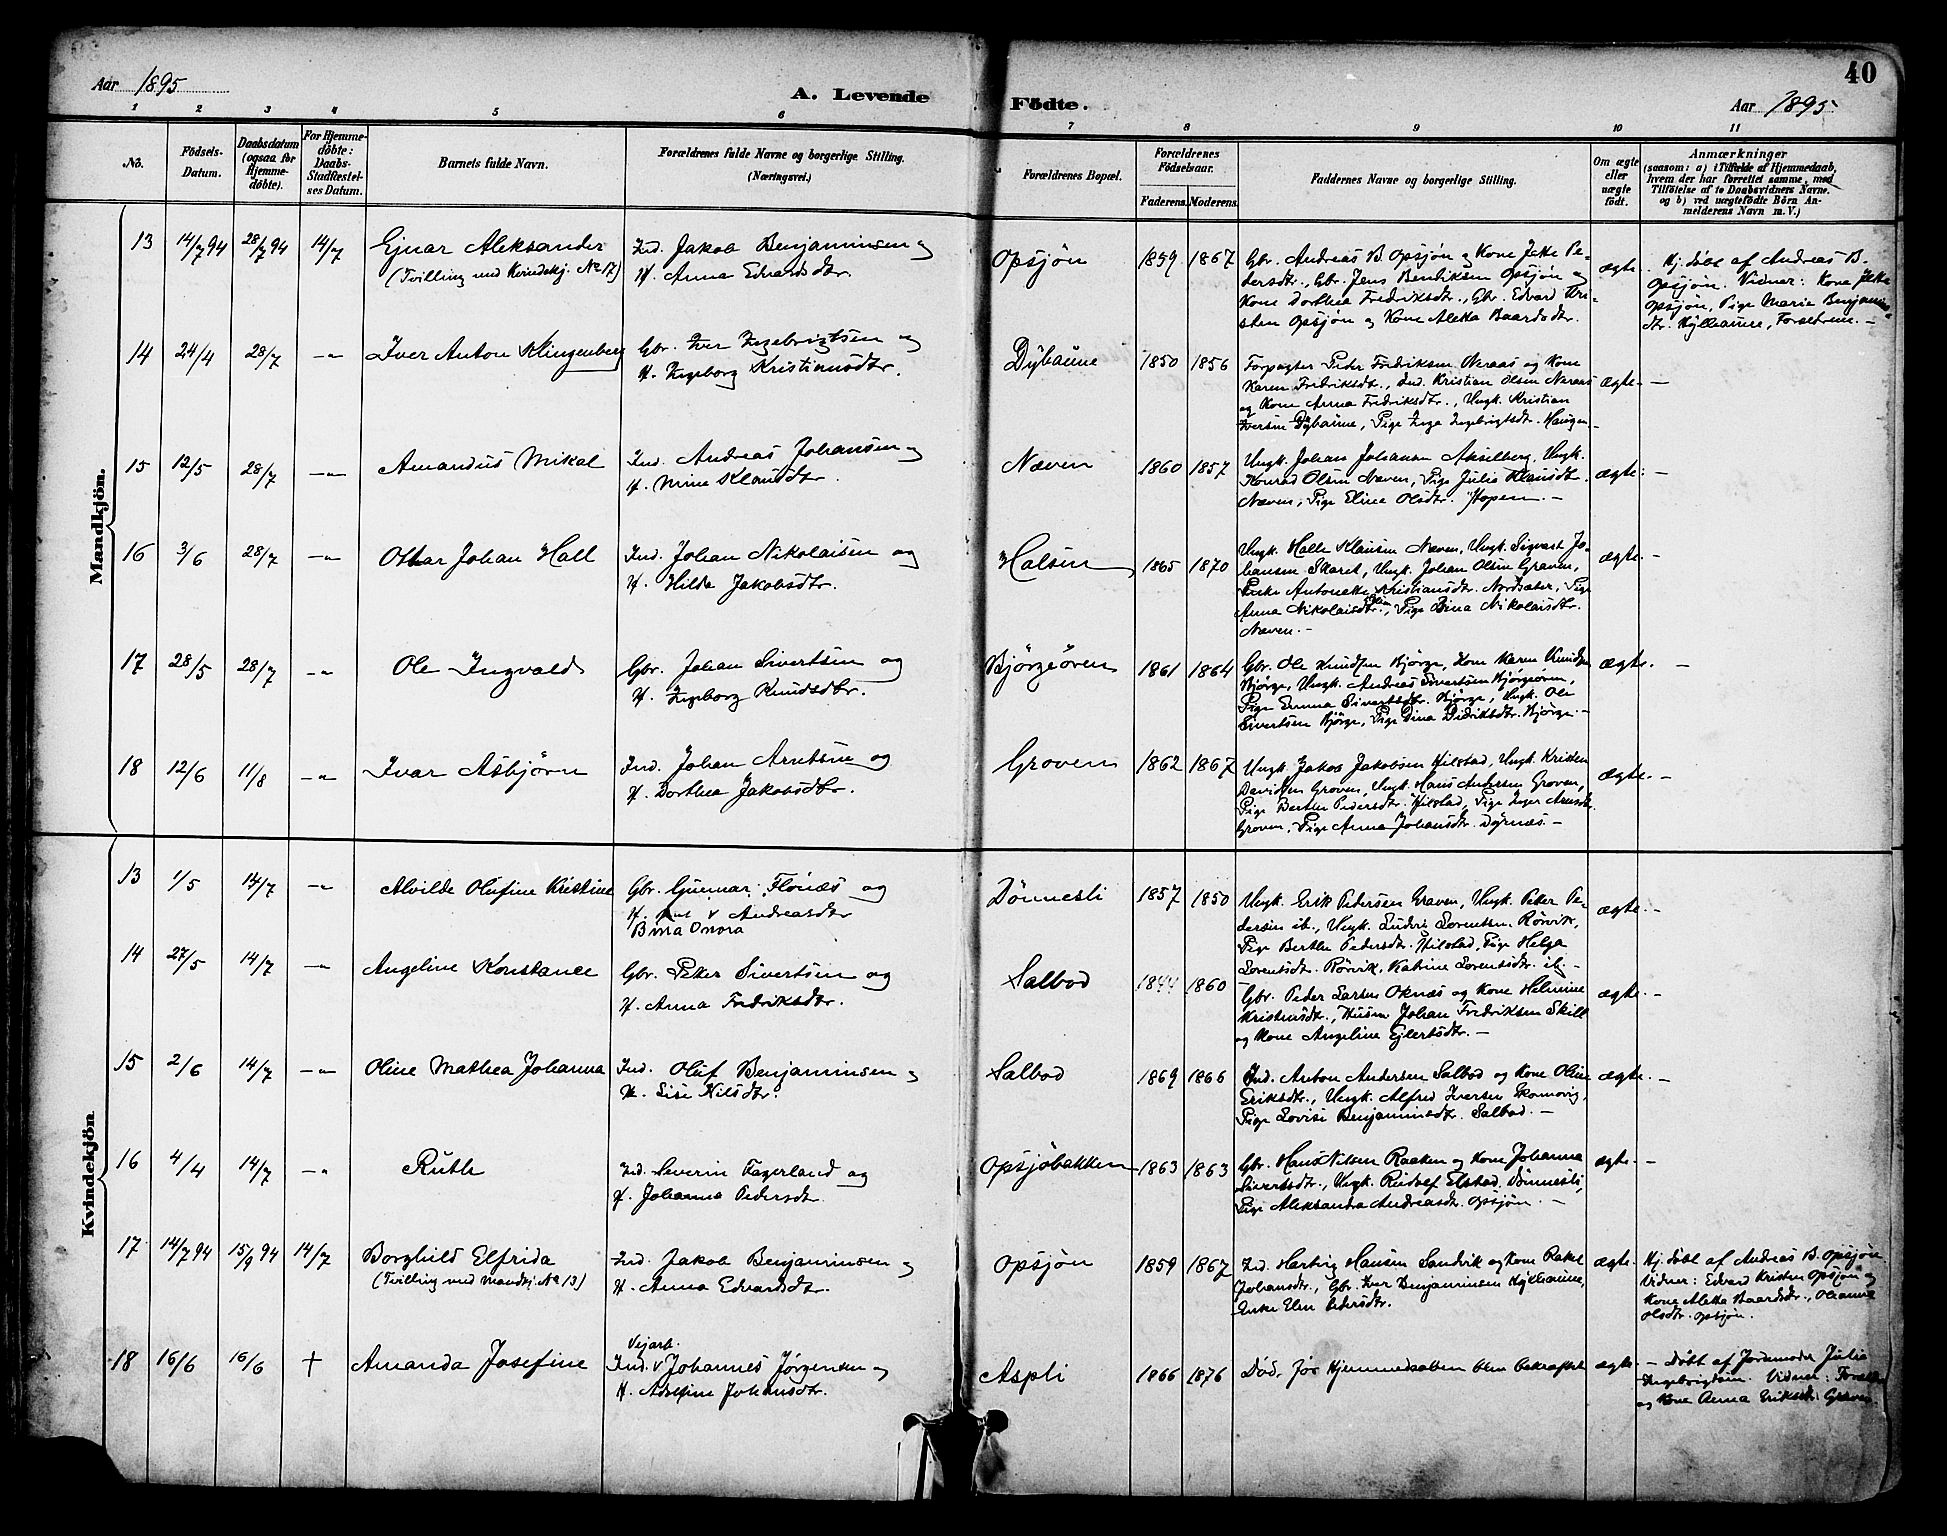 40
Aar 1895
A. Levende Födte.
Aar 1895
1 2 3 4 5 6 7 8 9 10 11
No.
Födsels-Datum.
Daabsdatum (ogsaa for Hjemme-döbte).
For Hjemme-döbte: Daabs-Stadfæstel-ses Datum.
Barnets fulde Navn.
Forældrenes fulde Navne og borgerlige Stilling.
(Næringsvei.)
Forældrenes Bopæl.
Forældrenes Födselsaar.
Faderens. Moderens.
Faddernes Navne og borgerlige Stilling.
Om ægte eller uægte födt.
Anmærkninger
(saasom: a) i Tilfælde af Hjemmedaab,
hvem der har forrettet samme, med
Tilföielse af to Daabsvidners Navne,
og b) ved uægtefödte Börn An-
melderens Navn m. V.)
Mandkjön.
13 14/7 94 28/7 94 14/7 Ejnar Aleksander
(Tvilling med Kvindekj. No 17)
Ind. Jakob Benjaminsen og
H. Anna Edvardsdtr.
Opsjøn 1859 1867
Gbr. Andreas B. Opsjøn og Kone Jekke Pe-
dersdtr., Gbr. Jens Bendiksen Opsjøn og
Kone Dorthea Fredriksdtr., Gbr. Edvard Kri-
sten Opsjøn og Kone Aletta Baardsdtr.
ægte.
Hj. døbt af Andreas B.
Opsjøn. Vidner: Kone Jekke
Opsjøn, Pige Marie Benjamins-
dtr. Kylhaune, Forældrene. –
14 24/4 28/7 –"– Iver Anton Klingenberg
Gbr. Iver Ingebrigtsen og
H. Ingeborg Kristiansdtr.
Dÿbaune 1850 1856
Forpagter Peder Fredriksen Neraas og Kone
Karen Fredriksdt., Ind. Kristian Olsen Neraas
og Kone Anna Fredriksdtr., Ungk. Kristian
Iversen Dÿbaune, Pige Inga Ingebrigtsdt. Haugen –
ægte. –
15 12/5 28/7 –"– Amandus Mikal
Ind. Andreas Johansen og
H. Nina Klausdtr.
Næven 1860 1857
Ungk. Johan Johansen Akselberg, Ungk.
Konrad Olsen Næven, Pige Julie Klausdtr.
Næven, Pige Eline Olsdtr. Hopen. –
ægte. –
16 3/6 28/7 –"– Ottar Johan Hall
Ind. Johan Nikolaisen og
H. Hilda Jakobsdtr.
Halsen 1865 1870
Ungk. Halle Klausen Næven, Ungk. Sigvart Jo-
hansen Skaret, Ungk. Johan Olsen Graven,
Enke Antonette Kristiansdtr. Nordsæter, Pige
Anna Nikolaisdtr., Pige Dina Nikolaisdtr.
Næven. –
ægte. –
17 28/5 28/7 –"– Ole Ingvald
Gbr. Johan Sivertsen og
H. Ingeborg Knudsdtr.
Bjørgeøren 1861 1864
Gbr. Ole Knudsen Bjørge, Kone Karen Knudsen
Bjørge, Ungk. Andreas Sivertsen Bjørgeøren,
Pige Emma Sivertsdtr. Bjørge, Ungk. Ole
Sivertsen Bjørge, Pige Dina Didriksdtr. Bjørge. –
ægte. –
18 12/6 11/8 –"– Ivar Asbjørn
Ind. Johan Arntsen og
H. Dorthea Jakobsdtr.
Groven 1862 1867
Ungk. Jakob Jakobsen Hilstad, Ungk. Kristen
Davidsen Groven, Ungk. Hans Andersen Groven,
Pige Berthe Pedersdtr. Hilstad, Pige Inger Arntsdtr.
Groven, Pige Anna Johansdtr. Dÿrnæs. –
ægte. –
Kvindekjön
13 1/5 14/7 –"– Alvilde Olufine Kristine
Gbr. Gunnar Flønæs og
H. Andreasdtr
Dønnesli 1857 1850
Ungk. Erik Pedersen Graven, Ungk. Peter Pe-
dersen ib., Ungk. Ludvis Lorentsen Rørvik,
Pige Berthe Pedersdtr. Hilstad, Pige Helga
Lorentsdt. Rørvik, Katrine Lorentsdtr. ib. –
ægte. –
14 27/5 14/7 –"– Angeline Konstance
Gbr. Peter Sivertsen og
H. Anna Fredriksdtr.
Salbod 1844 1860
Gbr. Peder Larsen Oknæs og Kone Helmine
Kristensdtr., Husm. Johan Fredriksen Skill
og Kone Angeline Ejlertsdtr. –
ægte. –
15 2/6 14/7 –"– Oline Mathea Johanna
Ind. Oluf Benjaminsen og
H. Lise Nilsdtr.
Salbod 1869 1866
Ind. Anton Andersen Salbod og Kone Oline
Eriksdtr., Ungk. Alfred Iversen
Pige Lovise Benjaminsdtr. Salbod. –
ægte. –
16 4/4 14/7 –"– Ruth
Ind. Severin Fagerland og
H. Johanna Pedersdt.
Opsjøbakken 1863 1863
Gbr. Hans Nilsen Raaken og Kone Johanna
Sivertsdtr., Ungk. Rudolf Elstad, Dønnesli,
Pige Aleksandra Andreasdt. Opsjøn. –
ægte. –
17 14/7 94 15/9 94 14/7 Borghild Elfrida
(Tvilling med Mandkj. No 13)
Ind. Jakob Benjaminsen og
H. Anna Edvardsdtr.
Opsjøn 1859 1867
Ind. Hartvig Hansen Sandvik og Kone Rakel
Johansdtr., Gbr. Iver Benjaminsen Kÿlhaune,
Enke Elen Pedersdtr.
ægte.
Hj. døbt af Andreas B. Opsjøn
Vidner: Edvard Kristen Opsjøn og
Kone Aletta Baardsdtr., Oleanna
Olsdtr. Opsjøn.
18 16/6 16/6 † Amanda Josefine
Vejarb.
Ind. v Johannes Jørgensen og
H. Adelfine Johansdtr.
Aspli 1866 1876
Død, før Hjemmedaaben blev bekræftet
ægte.
– Døbt af Jordmoder Julie
Ingebrigtsen. Vidner:
og Kone Anna Eriksdt. Graven.